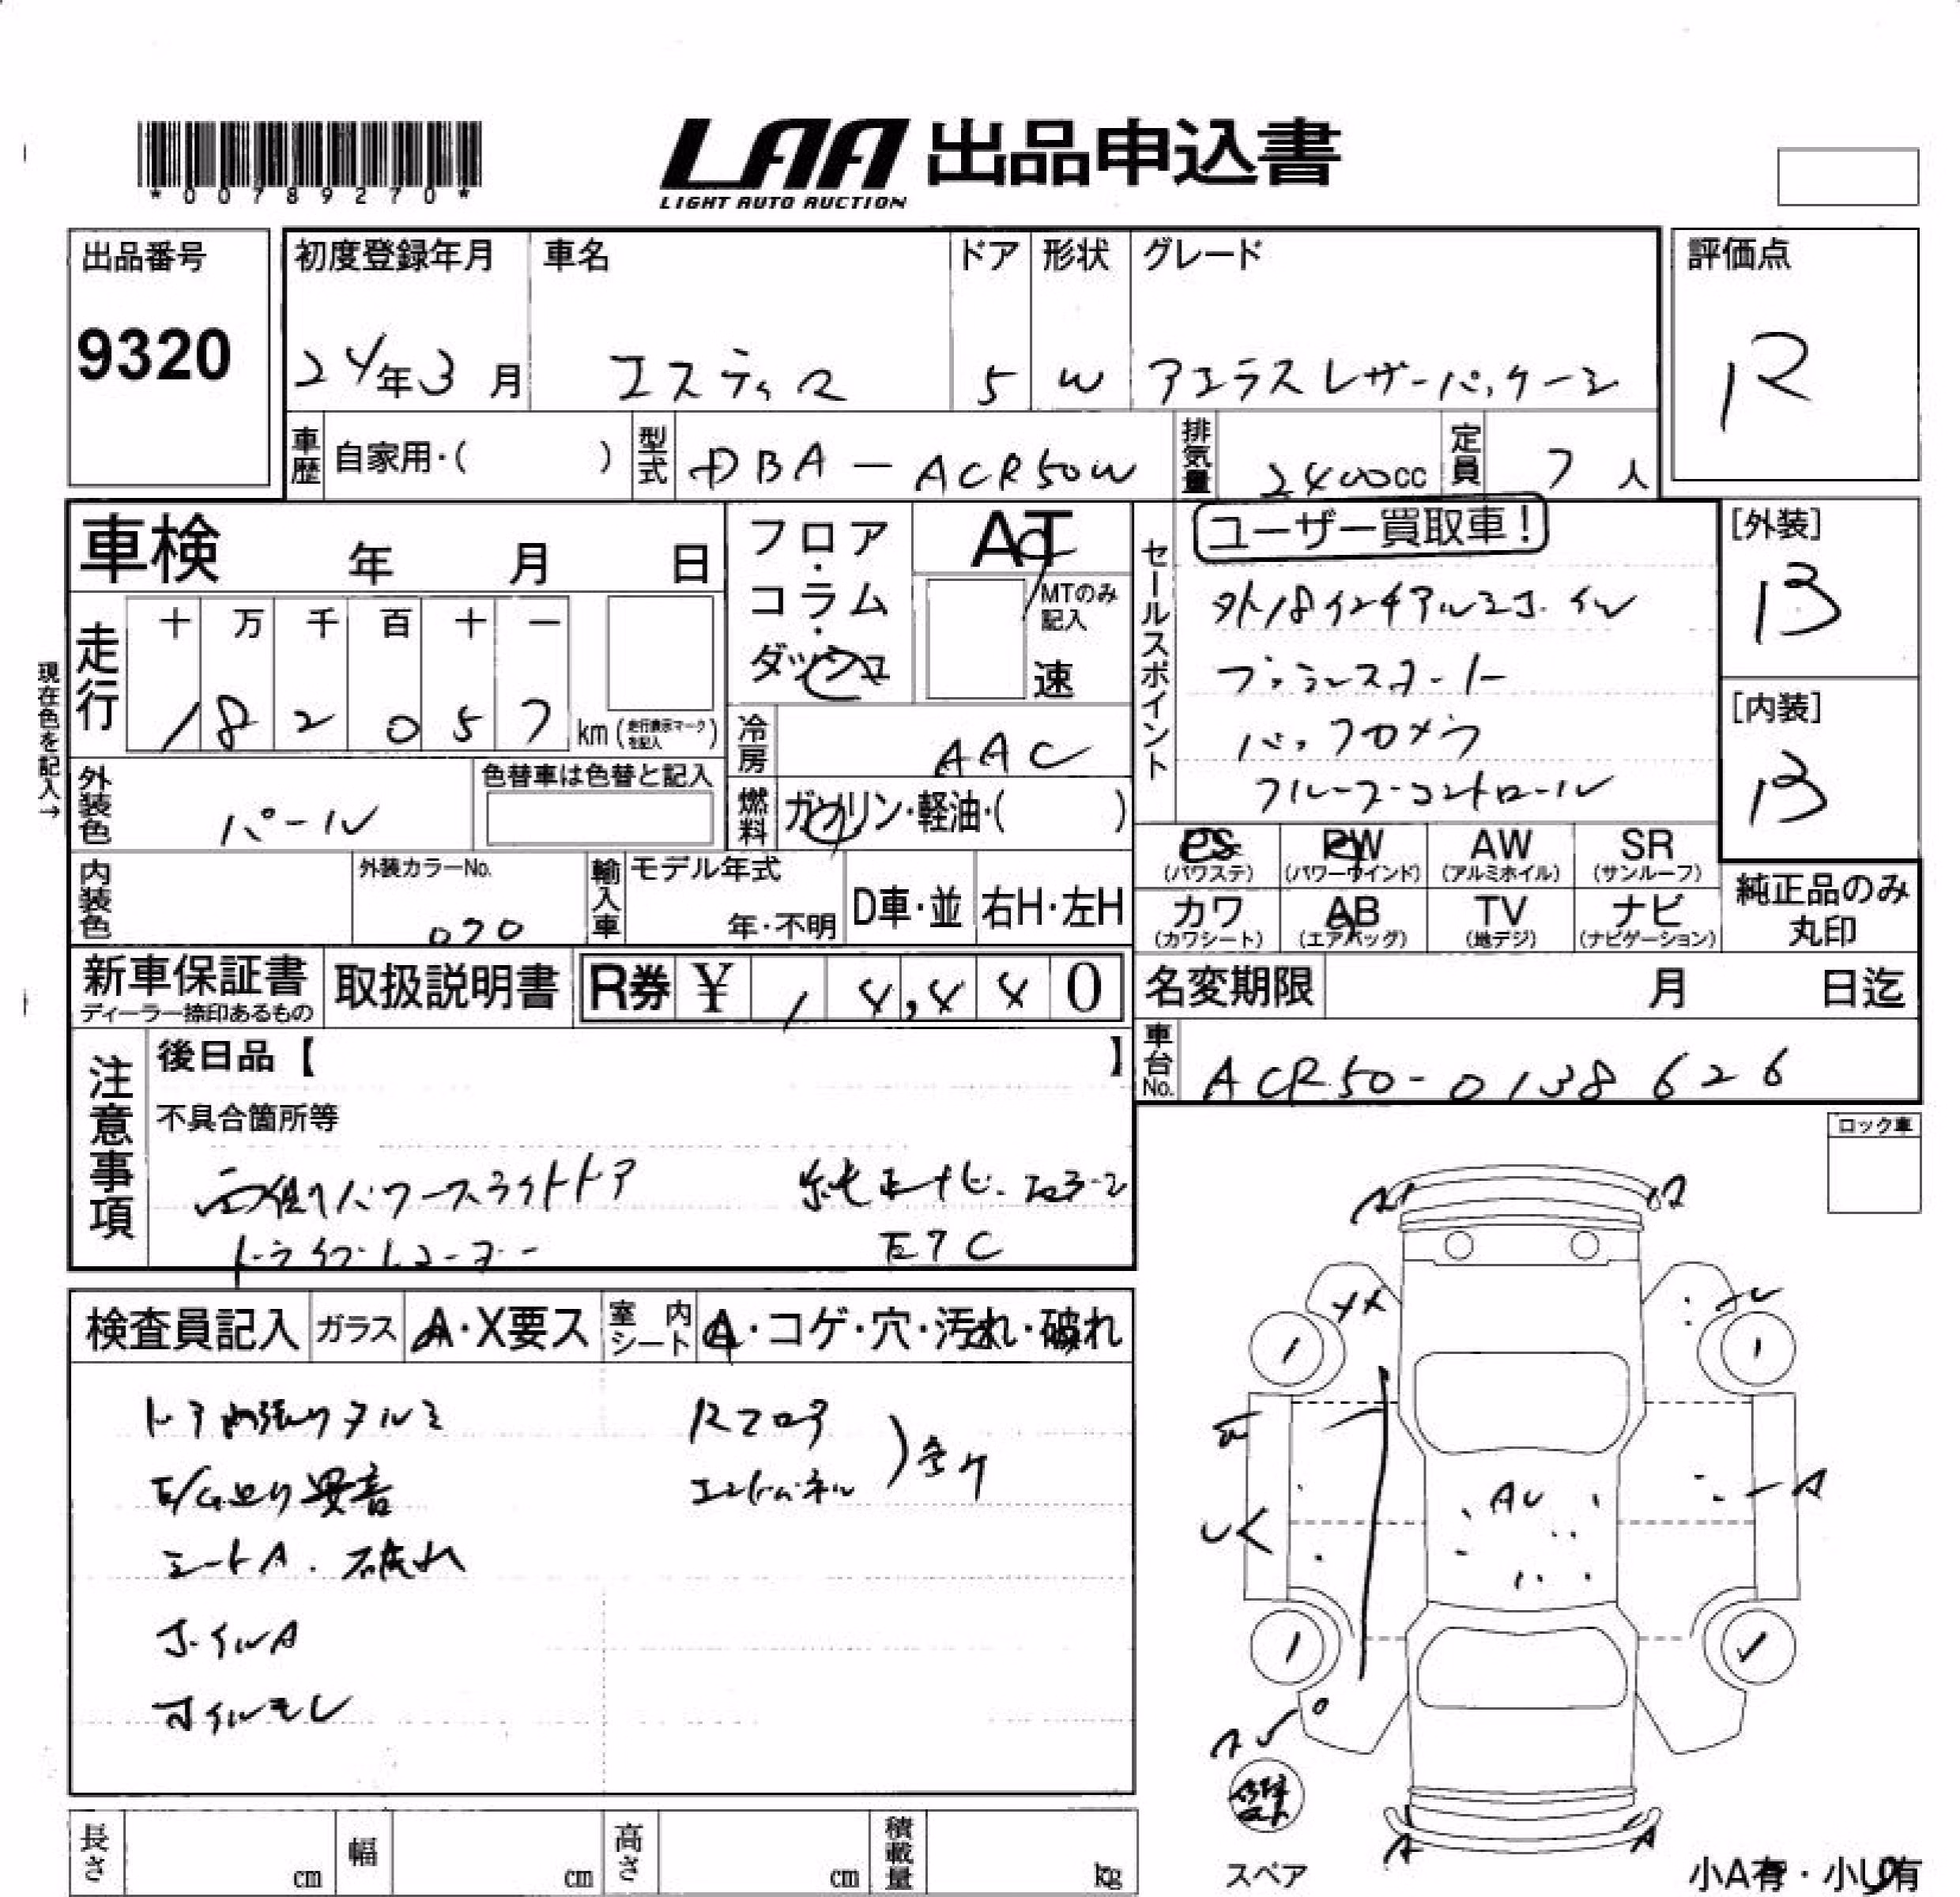 *00789270*
LAA 出品申込書
LIGHT AUTO AUCTION
出品番号
9320
初度登録年月
24年3月
車名
エスティマ
ドア
5
形状
W
グレード
アエラスレザーパッケージ
評価点
R
車歴 自家用・( )
型式 DBA-ACR50W
排気量 2400cc
定員 7人
車検 年 月 日
フロア・コラム・ダッシュ
AT
MTのみ記入
速
セールスポイント
ユーザー買取車!
外18インチアルミホイル
プッシュスタート
バックカメラ
クルーズコントロール
[外装]
B
[内装]
B
現在色を記入→
走行
十 万 千 百 十 一
1 8 2 0 5 7 km (走行表示マークを記入)
冷房 AAC
外装色 パール
色替車は色替と記入
燃料 ガソリン・軽油・( )
内装色
外装カラーNo.
070
輸入車
モデル年式
年・不明
D車・並
右H・左H
PS
(パワステ)
PW
(パワーウインド)
AW
(アルミホイル)
SR
(サンルーフ)
カワ
(カワシート)
AB
(エアバッグ)
TV
(地デジ)
ナビ
(ナビゲーション)
純正品のみ
丸印
新車保証書
ディーラー捺印あるもの
取扱説明書
R券 ¥ 14,440
名変期限 月 日迄
車台No. ACR50-0138626
注意事項
後日品【 】
不具合箇所等
両側パワースライドドア
ドライブレコーダー
ETC
ロック車
検査員記入
ガラス A・X要ス
室内シート A・コゲ・穴・汚れ・破れ
ドア内張りヌルミ
E/G辺り異音
シートA. 破れ
ホイルA
オイルモレ
Rフロア
エンドパネル
A
XX
U
A
AU
A
A
スペア
小A有・小U有
長さ cm
幅 cm
高さ cm
積載量 kg